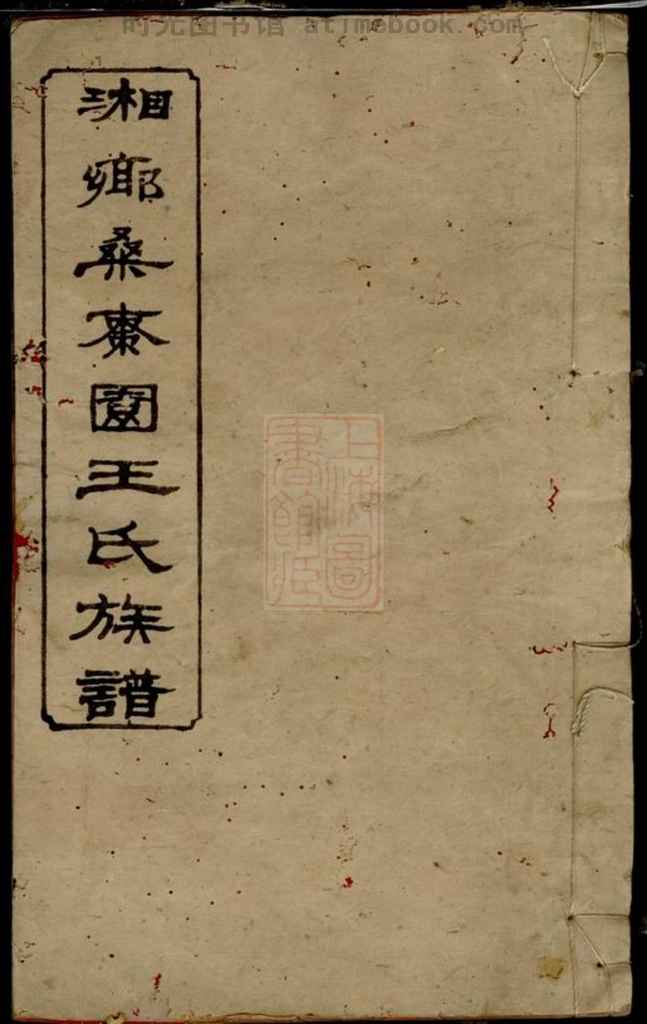 时光图书馆 atimebook.com
湘鄉桑棗園王氏族譜
上海圖
書館藏